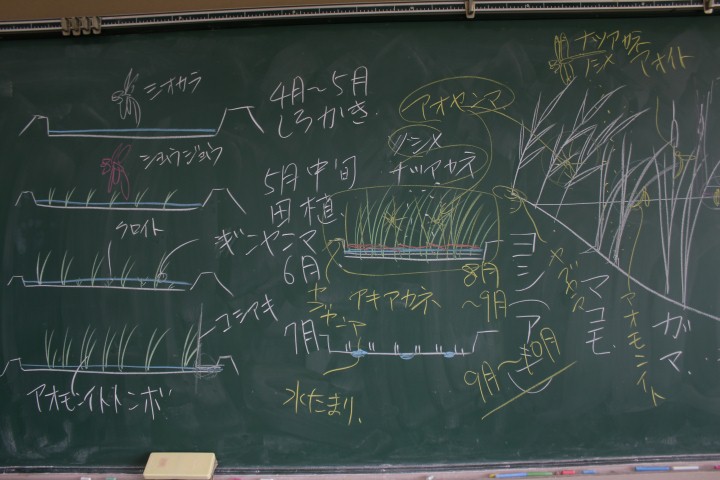 シオカラ
4月～5月
しろかき.
ショウジョウ
5月中旬
田植.
クロイト
ギンヤンマ
6月
コシアキ
7月
アオモンイトトンボ.
アオヤンマ
ノシメ
ナツアカネ
アキアカネ
8月
～9月
水たまり.
9月～10月
ナツアカネ
ノシメ
アオイト
ヨシ(アシ)
マコモ.
ガマ.
アオモンイト